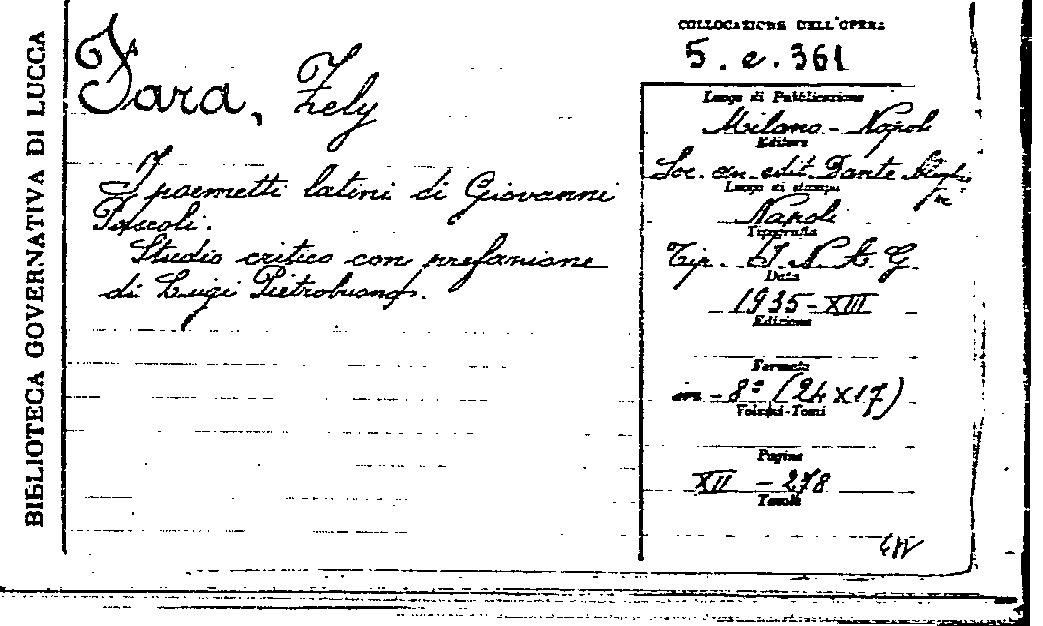 BIBLIOTECA GOVERNATIVA DI LUCCA
Fara, Zely
I poemetti latini di Giovanni
Pascoli.
Studio critico con prefazione
di Luigi Pietrobuono.
COLLOCAZIONE DELL'OPERA
5. e. 361
Luogo di Pubblicazione
Milano - Napoli
Editore
Soc. an. edit. Dante
Luogo di stampa
Napoli
Tipografia
Tip. I. N. A. G.
Data
1935-XIII
Edizione
Formato
in - 8° (24 x 17)
Volumi-Tomi
Pagine
XII - 278
Tavole